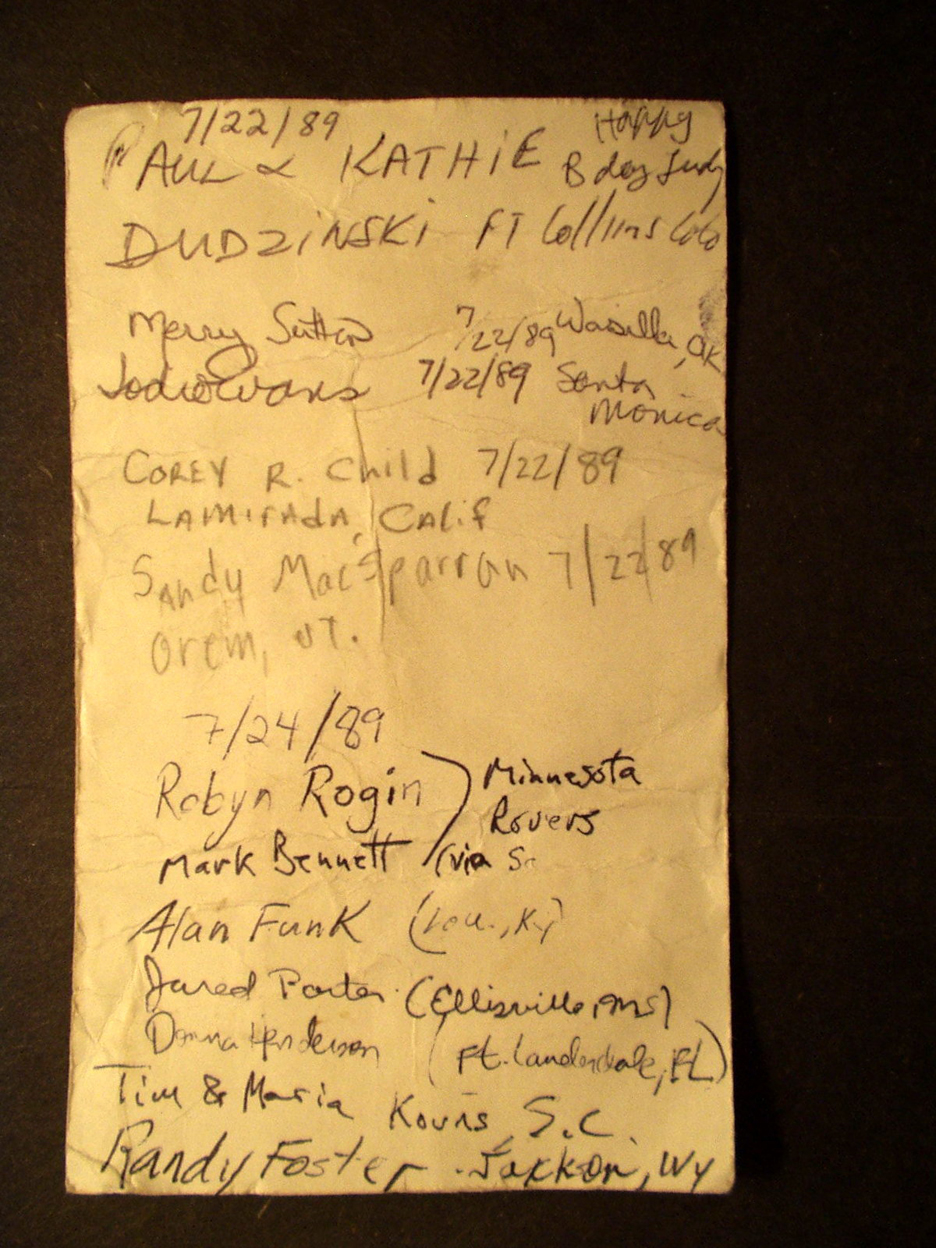 7/22/89 Happy
PAUL & KATHIE B day Judy
DUDZiNSKi FT Collins Colo
Merry Sutton 7/22/89 Wasilla, AK
Jodie Evans 7/22/89 Santa
Monica
COREY R. Child 7/22/89
LAMirAdA, CALif
SAndy MacSparran 7/22/89
Orem, UT.
7/24/89
Robyn Rogin } Minnesota
Rovers
Mark Bennett (via
Alan Funk (Lou., Ky)
Jared Porter (Ellisville, MS)
Donna Henderson (Ft. Lauderdale, FL)
Tim & Maria S.C.
Randy Foster Jackson, WY